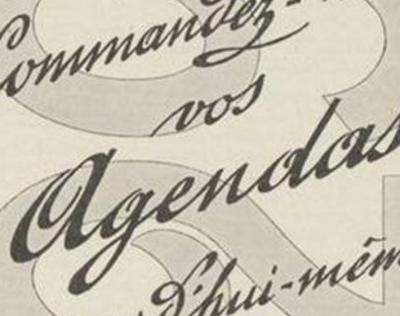 Commandez-
vos
Agendas
d'hui-mêm